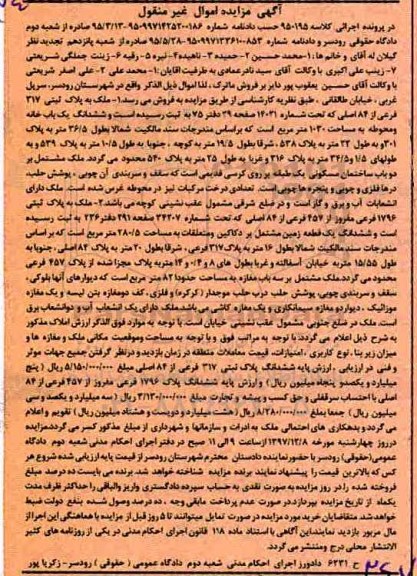 آگهی مزایده اموال غیر منقول
در پرونده اجرائی کلاسه 950195 حسب دادنامه شماره 95/3/13-9509971425200186 صادره از شعبه دوم
دادگاه حقوقی رودسر و دادنامه شماره 9509971336100853-95/5/28 صادره از شعبه پانزدهم تجدید نظر
گیلان له آقای و خانم ها: 1-محمد حسین 2-حمیده 3-ناهیده 4-نیره 5-رقیه 6-زینت جملگی شریعتی
7-زینب علی اکبری با وکالت آقای سید نادر عمادی به طرفیت آقایان: 1-محمد علی 2-علی اصغر شریعتی
با وکالت آقای حسین یعقوب پور دایر بر فروش ماترک، لذا اموال ذیل الذکر واقع در شهرستان رودسر، سرپل
غربی، خیابان طالقانی، طبق نظریه کارشناسی از طریق مزایده به فروش می رسد: 1-ملک به پلاک ثبتی 317
فرعی از 84 اصلی که تحت شماره 14031 صفحه 39 دفتر 75 به ثبت رسیده است و ششدانگ یک باب خانه
ومحوطه به مساحت 1030 متر مربع است که براساس مندرجات سند مالکیت شمالا بطول 36/5 متر به پلاک
301 و به طول 22 متر به پلاک 538، شرقا بطول 19/5 متر به کوچه، جنوبا به طول 10/5 متر به پلاک 539 و به
طولهای 1/5 و 34/5 متر به پلاک 316 و غربا به طول 25 متر به پلاک 540 محدود می گردد. ملک مشتمل بر
دو باب ساختمان مسکونی یک طبقه بر روی کرسی قدیمی است که سقف و سربندی آن چوبی، پوشش حلب،
درها فلزی و چوبی و پنجره ها چوبی است. تعدادی درخت مرکبات نیز در محوطه غرس شده است. ملک دارای
انشعابات آب و برق و گاز است و در ضلع شرقی مشمول عقب نشینی کوچه می باشد. 2-ملک به پلاک ثبتی
1796 فرعی مفروز از 457 فرعی از 84 اصلی که تحت شماره 34207 صفحه 291 دفتر 236 به ثبت رسیده
است و ششدانگ یک قطعه زمین مشتمل بر دکاکین ومتعلقات به مساحت 280/5 متر مربع است که بر اساس
مندرجات سند مالکیت شمالا بطول 16 متر به پلاک 317 فرعی، شرقا بطول 20 متر به پلاک 82 اصلی، جنوبا به
طول 15/55 متر به خیابان اسفالته و غربا بطول های 8 و 0/4 و 14 متر به پلاک مجزا شده از پلاک 457 فرعی
محدود می گردد. ملک مشتمل بر سه باب مغازه به مساحت حدودا 82 متر مربع است که دیوارهای آنها بلوکی،
سقف و سربندی چوبی، پوشش حلب درب حلب موجدار (کرکره) و فلزی، کف دومغازه بتن لیسه و یک مغازه
موزائیک، دیوار دو مغازه سیمانکاری و یک مغازه کاشی می باشد. ملک دارای دو انشعاب آب و دوانشعاب برق
است. ملک در ضلع جنوبی مشمول عقب نشینی خیابان است. با توجه به موارد فوق الذکر ارزش املاک مذکور
به شرح ذیل اعلام می گردد. با توجه به مراتب فوق و با توجه به مساحت وموقعیت مکانی ملک و مغازه ها و
میزان زیر بنا، نوع کاربری، امتیازات، قیمت معاملات منطقه در زمان بازدید و درنظر گرفتن جمیع جهات موثر
و فنی در ارزیابی، ارزش پایه ششدانگ پلاک ثبتی 317 فرعی از 84 اصلی مبلغ 5/150/000/000 ریال (پنج
میلیارد و یکصدو پنجاه میلیون ریال) و ارزش پایه ششدانگ پلاک 1796 فرعی مفروز از 457 فرعی از 84
اصلی با احتساب سرقفلی و حق کسب و پیشه و تجارت مبلغ 3/130/000/000 ریال (سه میلیارد و یکصد و سی
میلیون ریال) جمعا بمبلغ 8/280/000/000 ریال (هشت میلیارد و دویست و هشتاد میلیون ریال) تقویم و اعلام
می گردد و بدهکاری های احتمالی ملک به ادارات و سازمانها و شهرداری از مبلغ مذکور کسر می گردد. مزایده
درروز چهارشنبه مورخه 1397/12/8 ازساعت 9 الی 11 صبح در دفتر اجرای احکام مدنی شعبه دوم دادگاه
عمومی(حقوقی) رودسر با حضور نماینده دادستان محترم شهرستان رودسر از قیمت پایه ارزیابی شده شروع هر
کس که بالاترین قیمت را پیشنهاد نمایند برنده مزایده شناخته خواهد شد. برنده می بایست ده درصد مبلغ
فروخته شده را در روز مزایده به صورت نقدی به حساب سپرده دادگستری واریز والباقی را حداکثر ظرف مدت
یکماه از تاریخ مزایده بپردازد. در صورت عدم پرداخت مابقی وجه، ده درصد وصول شده بنفع دولت ضبط
خواهد شد. متقاضیان خرید مورد مزایده در صورت تمایل میتوانند تا 5 روز قبل از مزایده با هماهنگی این اجرا از
مال مزبور بازدید نمایند. این آگهی با استناد ماده 118 قانون اجرای احکام مدنی در یکی از روزنامه های کثیر
الانتشار محلی درج ومنتشر می گردد.
ح 6231 دادورز اجرای احکام مدنی شعبه دوم دادگاه عمومی (حقوقی) رودسر- زکریا پور